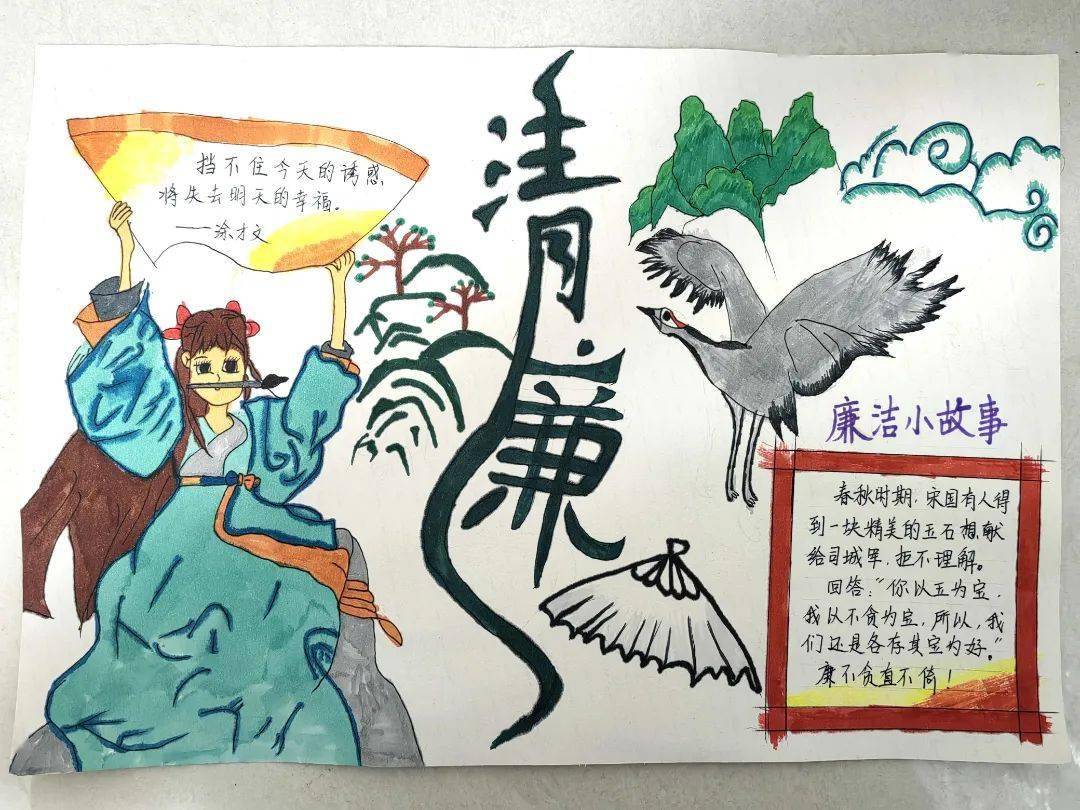 挡不住今天的诱惑
将失去明天的幸福。
——涂才文
清廉
廉洁小故事
春秋时期，宋国有人得
到一块精美的玉石想献
给司城罕，拒不理解。
回答：“你以玉为宝，
我以不贪为宝，所以，我
们还是各存其宝为好。”
廉不贪直不倚！